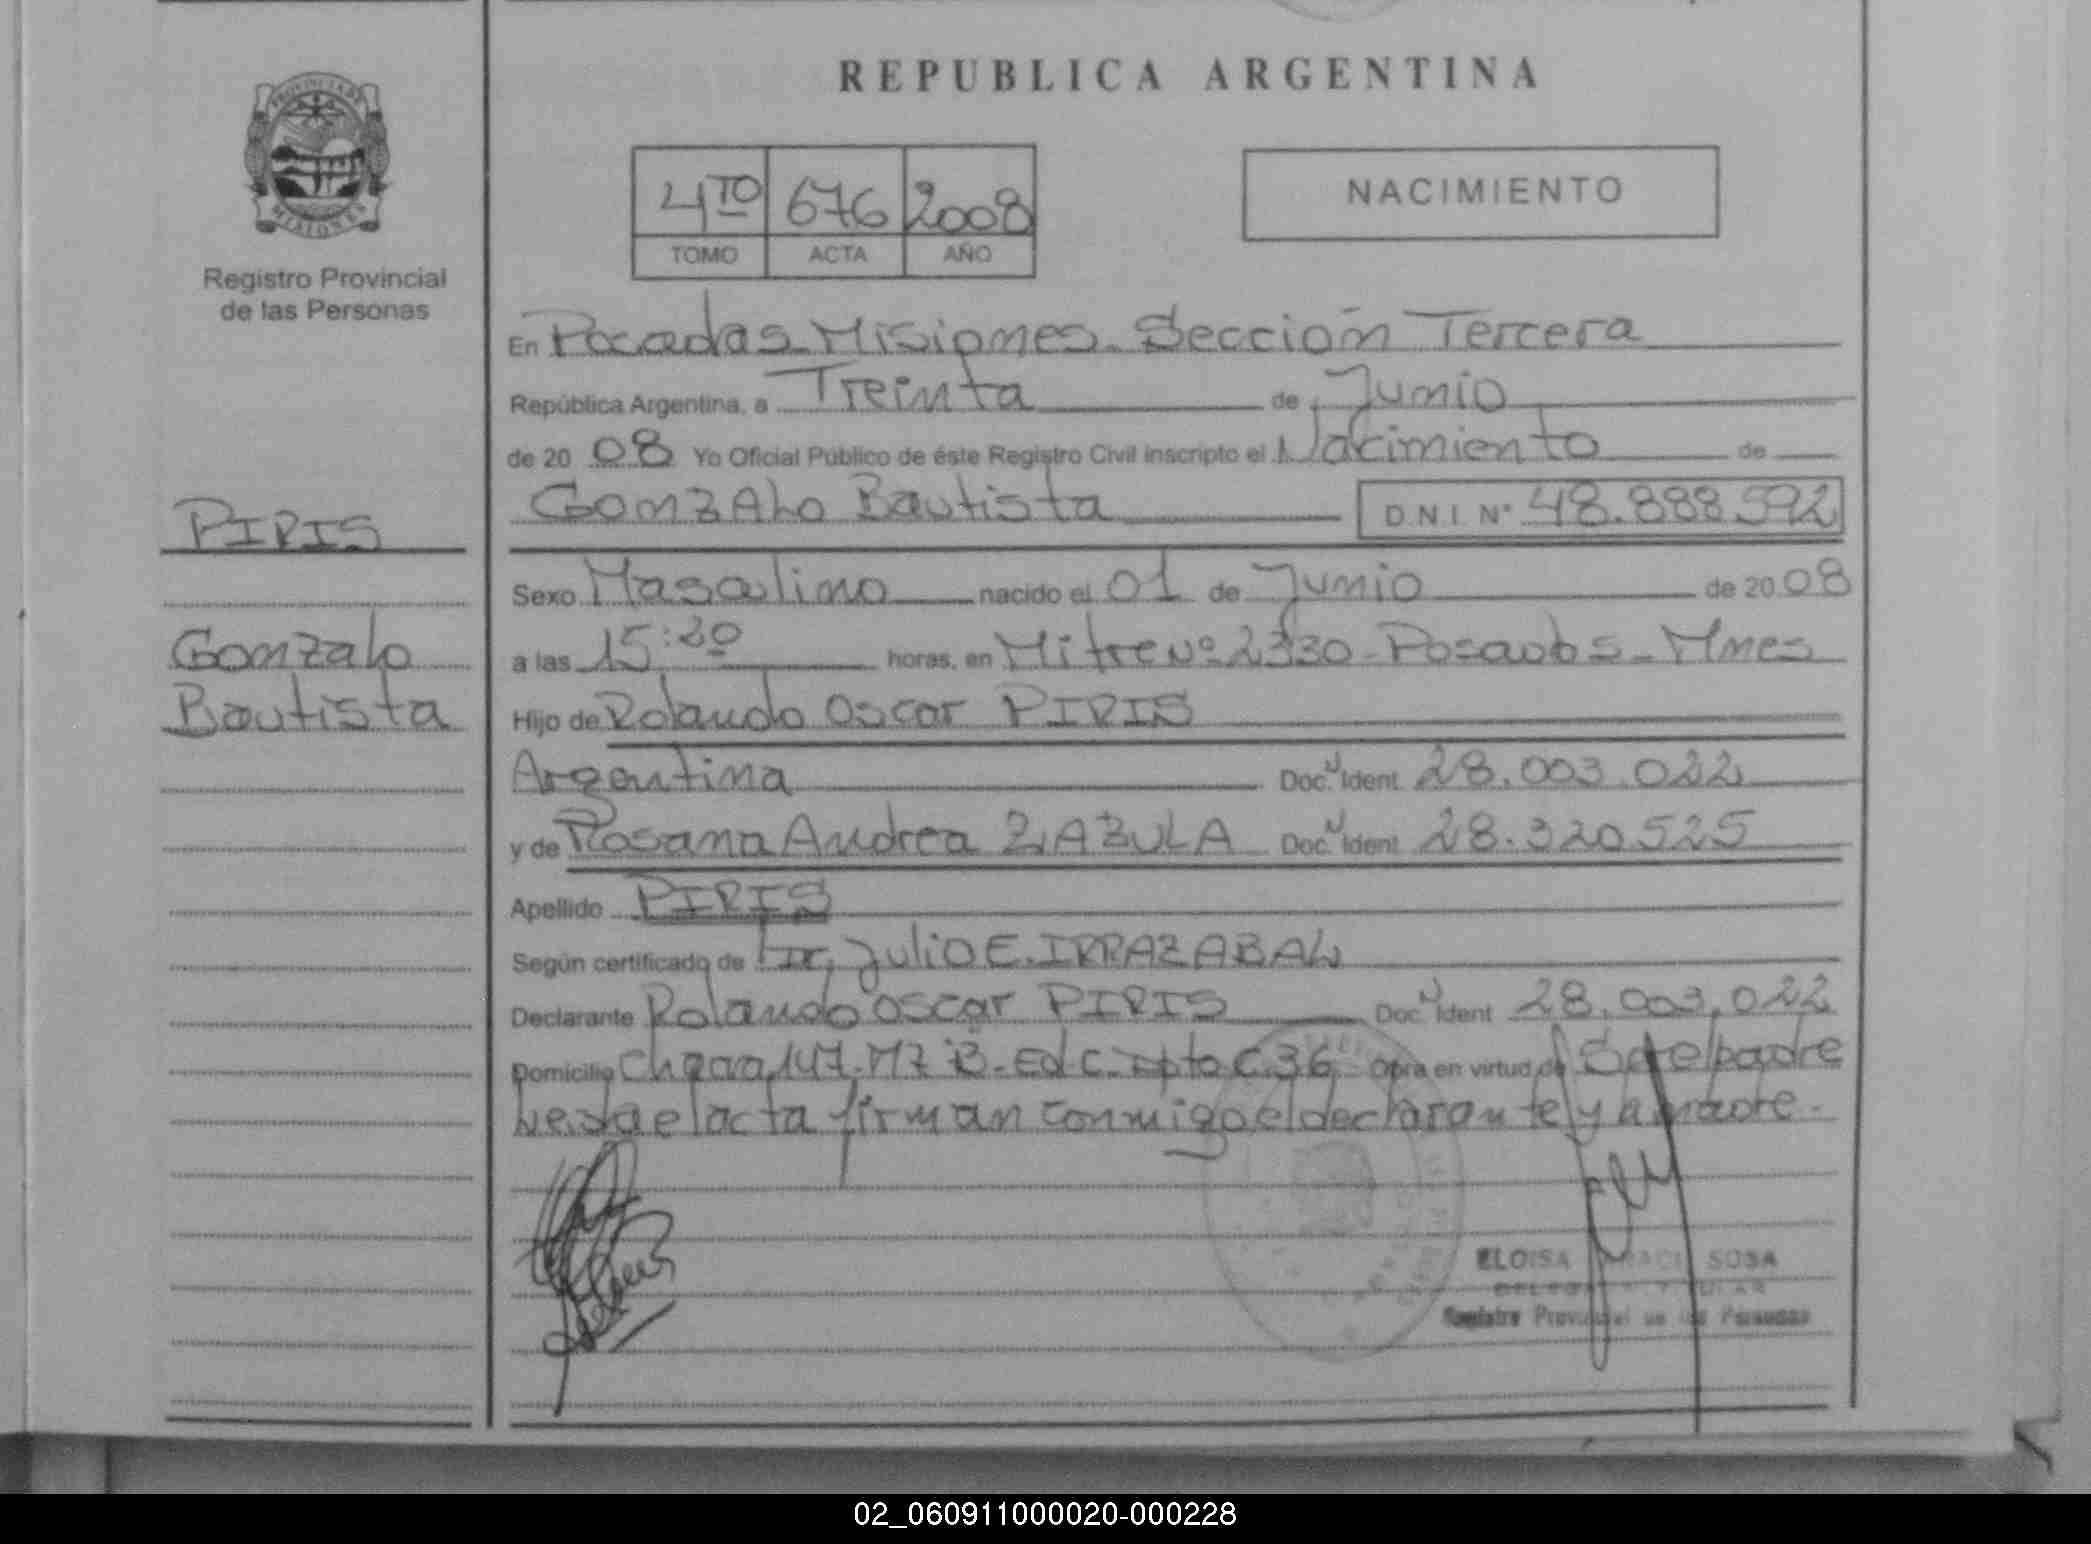 REPUBLICA ARGENTINA
PROVINCIA DE
MISIONES
Registro Provincial
de las Personas
4TO 676 2008
TOMO ACTA AÑO
NACIMIENTO
En Posadas Misiones. Sección Tercera
República Argentina, a Treinta de Junio
de 20 08 Yo Oficial Público de éste Registro Civil inscripto el Nacimiento de
PIRIS
Gonzalo
Bautista
GonzALo Bautista D N I Nº 48.888.592
Sexo Masculino nacido el 01 de Junio de 20 08
a las 15:20 horas, en Mitre Nº 2330 - Posadas - Mnes
Hijo de Rolando Oscar PIRIS
Argentina Doc. Ident. 28.003.022
y de Rosana Andrea ZABULA Doc. Ident 28.320.525
Apellido PIRIS
Según certificado de Dr. Julio E. IRRAZABAL
Declarante Rolando Oscar PIRIS Doc. Ident 28.003.022
Domicilio Chacra 147. M7 B - Ed C - Dpto C 36 Obra en virtud de S del padre
Leida el acta firman conmigo el declarante y la madre.
ELOISA SOSA
Registro Provincial de las Personas
02_060911000020-000228